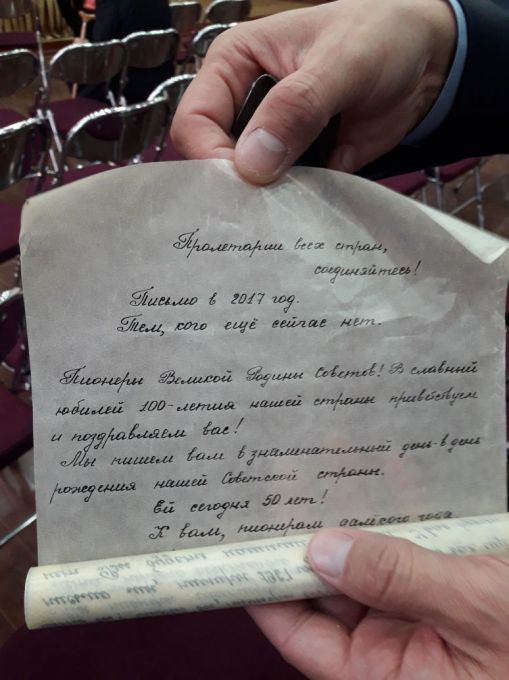 Пролетарии всех стран,
соединяйтесь!
Письмо в 2017 год.
Тем, кого ещё сейчас нет.
Пионеры Великой Родины Советов! В славный
юбилей 100-летия нашей страны приветствуем
и поздравляем вас!
Мы пишем вам в знаменательный день-в день
рождения нашей Советской страны.
Ей сегодня 50 лет!
К вам, пионерам далёкого года